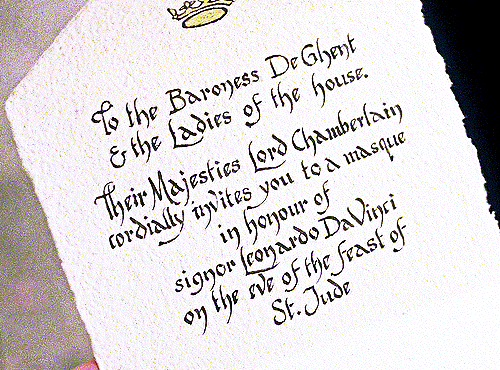 To the Baroness De Ghent
& the Ladies of the house.
Their Majesties Lord Chamberlain
cordially invites you to a masque
in honour of
signor Leonardo DaVinci
on the eve of the feast of
St. Jude